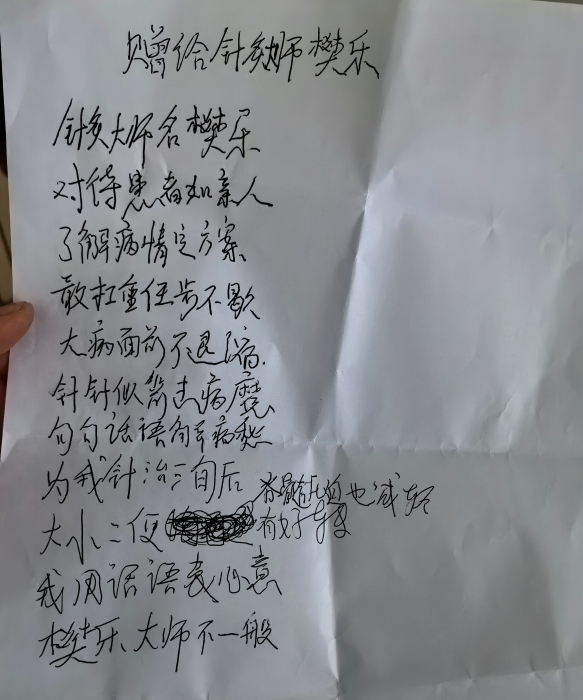 赠给针灸师樊乐
针灸大师名樊乐
对待患者如亲人
了解病情定方案
敢扛重任步不歇
大病面前不退缩
针针似箭击病魔
句句话语解病愁
为我针治三旬后
脊髓 也减轻
大小二便 有好转
我用话语表心意
樊乐大师不一般